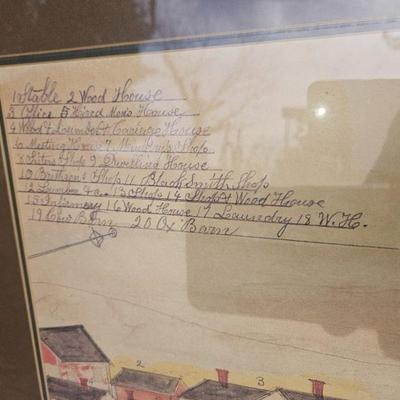 1 Stable 2 Wood House
3 Office 5 Hired Men's House
4 Wood & Lumber & Carriage House
Meeting House 7 Shop
Shop 9 Dwelling House
10 Brethren's Shop 11 Black Smith Shop
12 Lumber 13 Shop 14 Shop & Wood House
15 Infirmary 16 Wood House 17 Laundry 18 W. H.
19 Cow Barn 20 Ox Barn
2
3